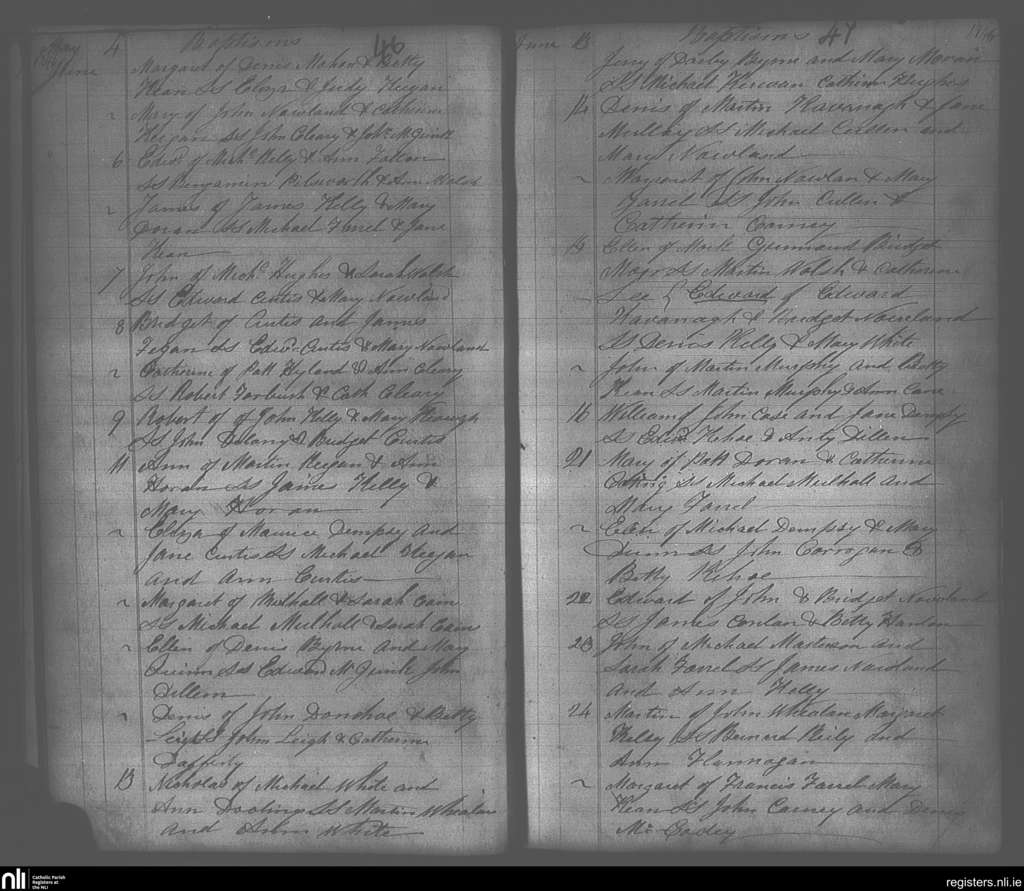 May 4 Baptisms 46
June Margaret of Denis Maher & Betty
Kean Ss Eliza & Judy Keegan
~ Mary of John Nowland & Catherine
Keegan Ss John Cleary &
6 Edwd of Michl Kelly & Ann Fallon
Ss Benjamin & Ann Walsh
~ James of James Kelly & Mary
Doran Ss Michael Farrel & Jane
Kean
7 John of Michl Hughes & Sarah Walsh
Ss Edward Curtis & Mary Nowland
8 Bridget of Curtis and James
Fegan Ss Edwd Curtis & Mary Nowland
~ Catherine of Patt Hyland & Ann Cleary
Ss Robert & Cath Cleary
9 Robert of of John Kelly & Mary
Ss John Delany & Bridget Curtis
11 Ann of Martin Keegan & Ann
Horan Ss James Kelly &
Mary Horan
~ Eliza of Maurice Dempsey and
Jane Curtis Ss Michael Keegan
and Ann Curtis
~ Margaret of Mulhall & Sarah
Ss Michael Mulhall & Sarah
~ Ellen of Denis Byrne and Mary
Quinn Ss Edward John
Dillon
~ Denis of John Donohoe & Betty
Leigh Ss John Leigh & Catherine

13 Nicholas of Michael White and
Ann Dooling Ss Martin Whealan
and Ann White
June 13 Baptisms 47
Jeny of Darby Byrne and Mary Moran
Ss Michael Kerwan Catherin Hughes
14 Denis of Martin Kavanagh & Jane
Mullay Ss Michael Cullen and
Mary Nowland
~ Margaret of John Nowlan & Mary
Farrel Ss John Cullen &
Catherin Carney
15 Ellen of Mark Bridget
Major Ss Martin Walsh & Catherine
Lee { Edward of Edward
Kavanagh & Bridget Nowland
Ss Denis Kelly & Mary White
~ John of Martin Murphy and Betty
Kean Ss Martin Murphy & Ann
16 William of John Case and Jane Dempsy
Ss Edwd Kehoe & Anty Dillon
21 Mary of Patt Doran & Catherine
Ss Michael Mulhall and
Mary Farrel
~ Ellen of Michael Dempsey & Mary
Dunn Ss John Corrogan &
Betty Kehoe
22 Edward of John & Bridget Nowland
Ss James Conlan & Betty Hanlon
23 John of Michael Masterson and
Sarah Farrel Ss James Nowland
and Ann Kelly
24 Martin of John Whealan Margaret
Kelly Ss Bernard Reily and
Ann Flannagan
~ Margaret of Francis Farrel Mary
Kean Ss John Carney and
Mc
nli
Catholic Parish
Registers at
the NLI
registers.nli.ie